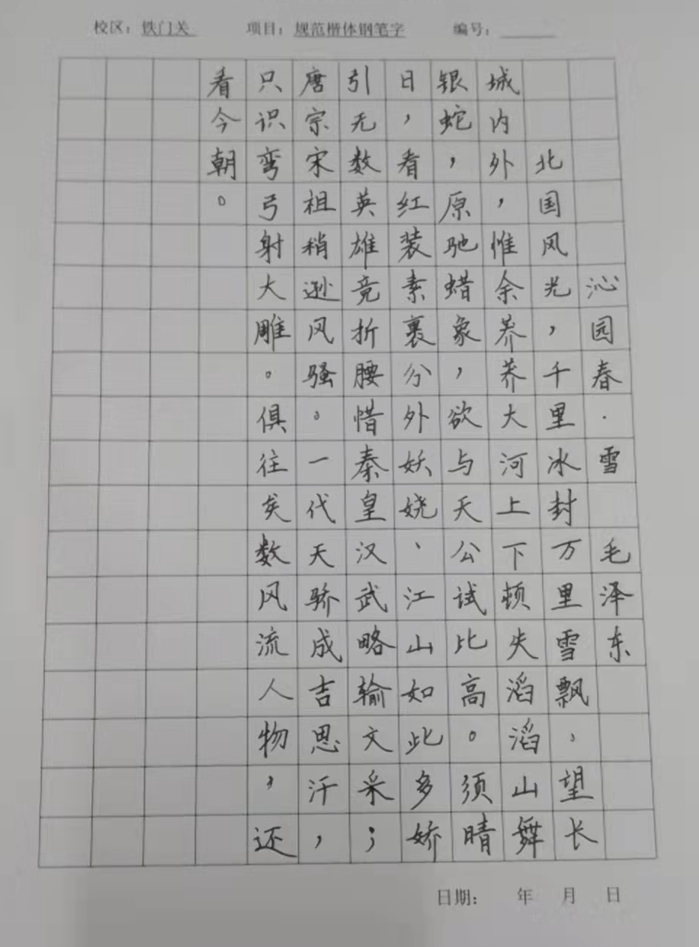 校区：铁门关 项目：规范楷体钢笔字 编号：
沁园春·雪 毛泽东
北国风光，千里冰封万里雪飘，望长
城内外，惟余莽莽大河上下顿失滔滔山舞
银蛇，原驰蜡象，欲与天公试比高。须晴
日，看红装素裹分外妖娆、江山如此多娇
引无数英雄竞折腰惜秦皇汉武略输文采；
唐宗宋祖稍逊风骚。一代天骄成吉思汗，
只识弯弓射大雕。俱往矣数风流人物，还
看今朝。
日期： 年 月 日